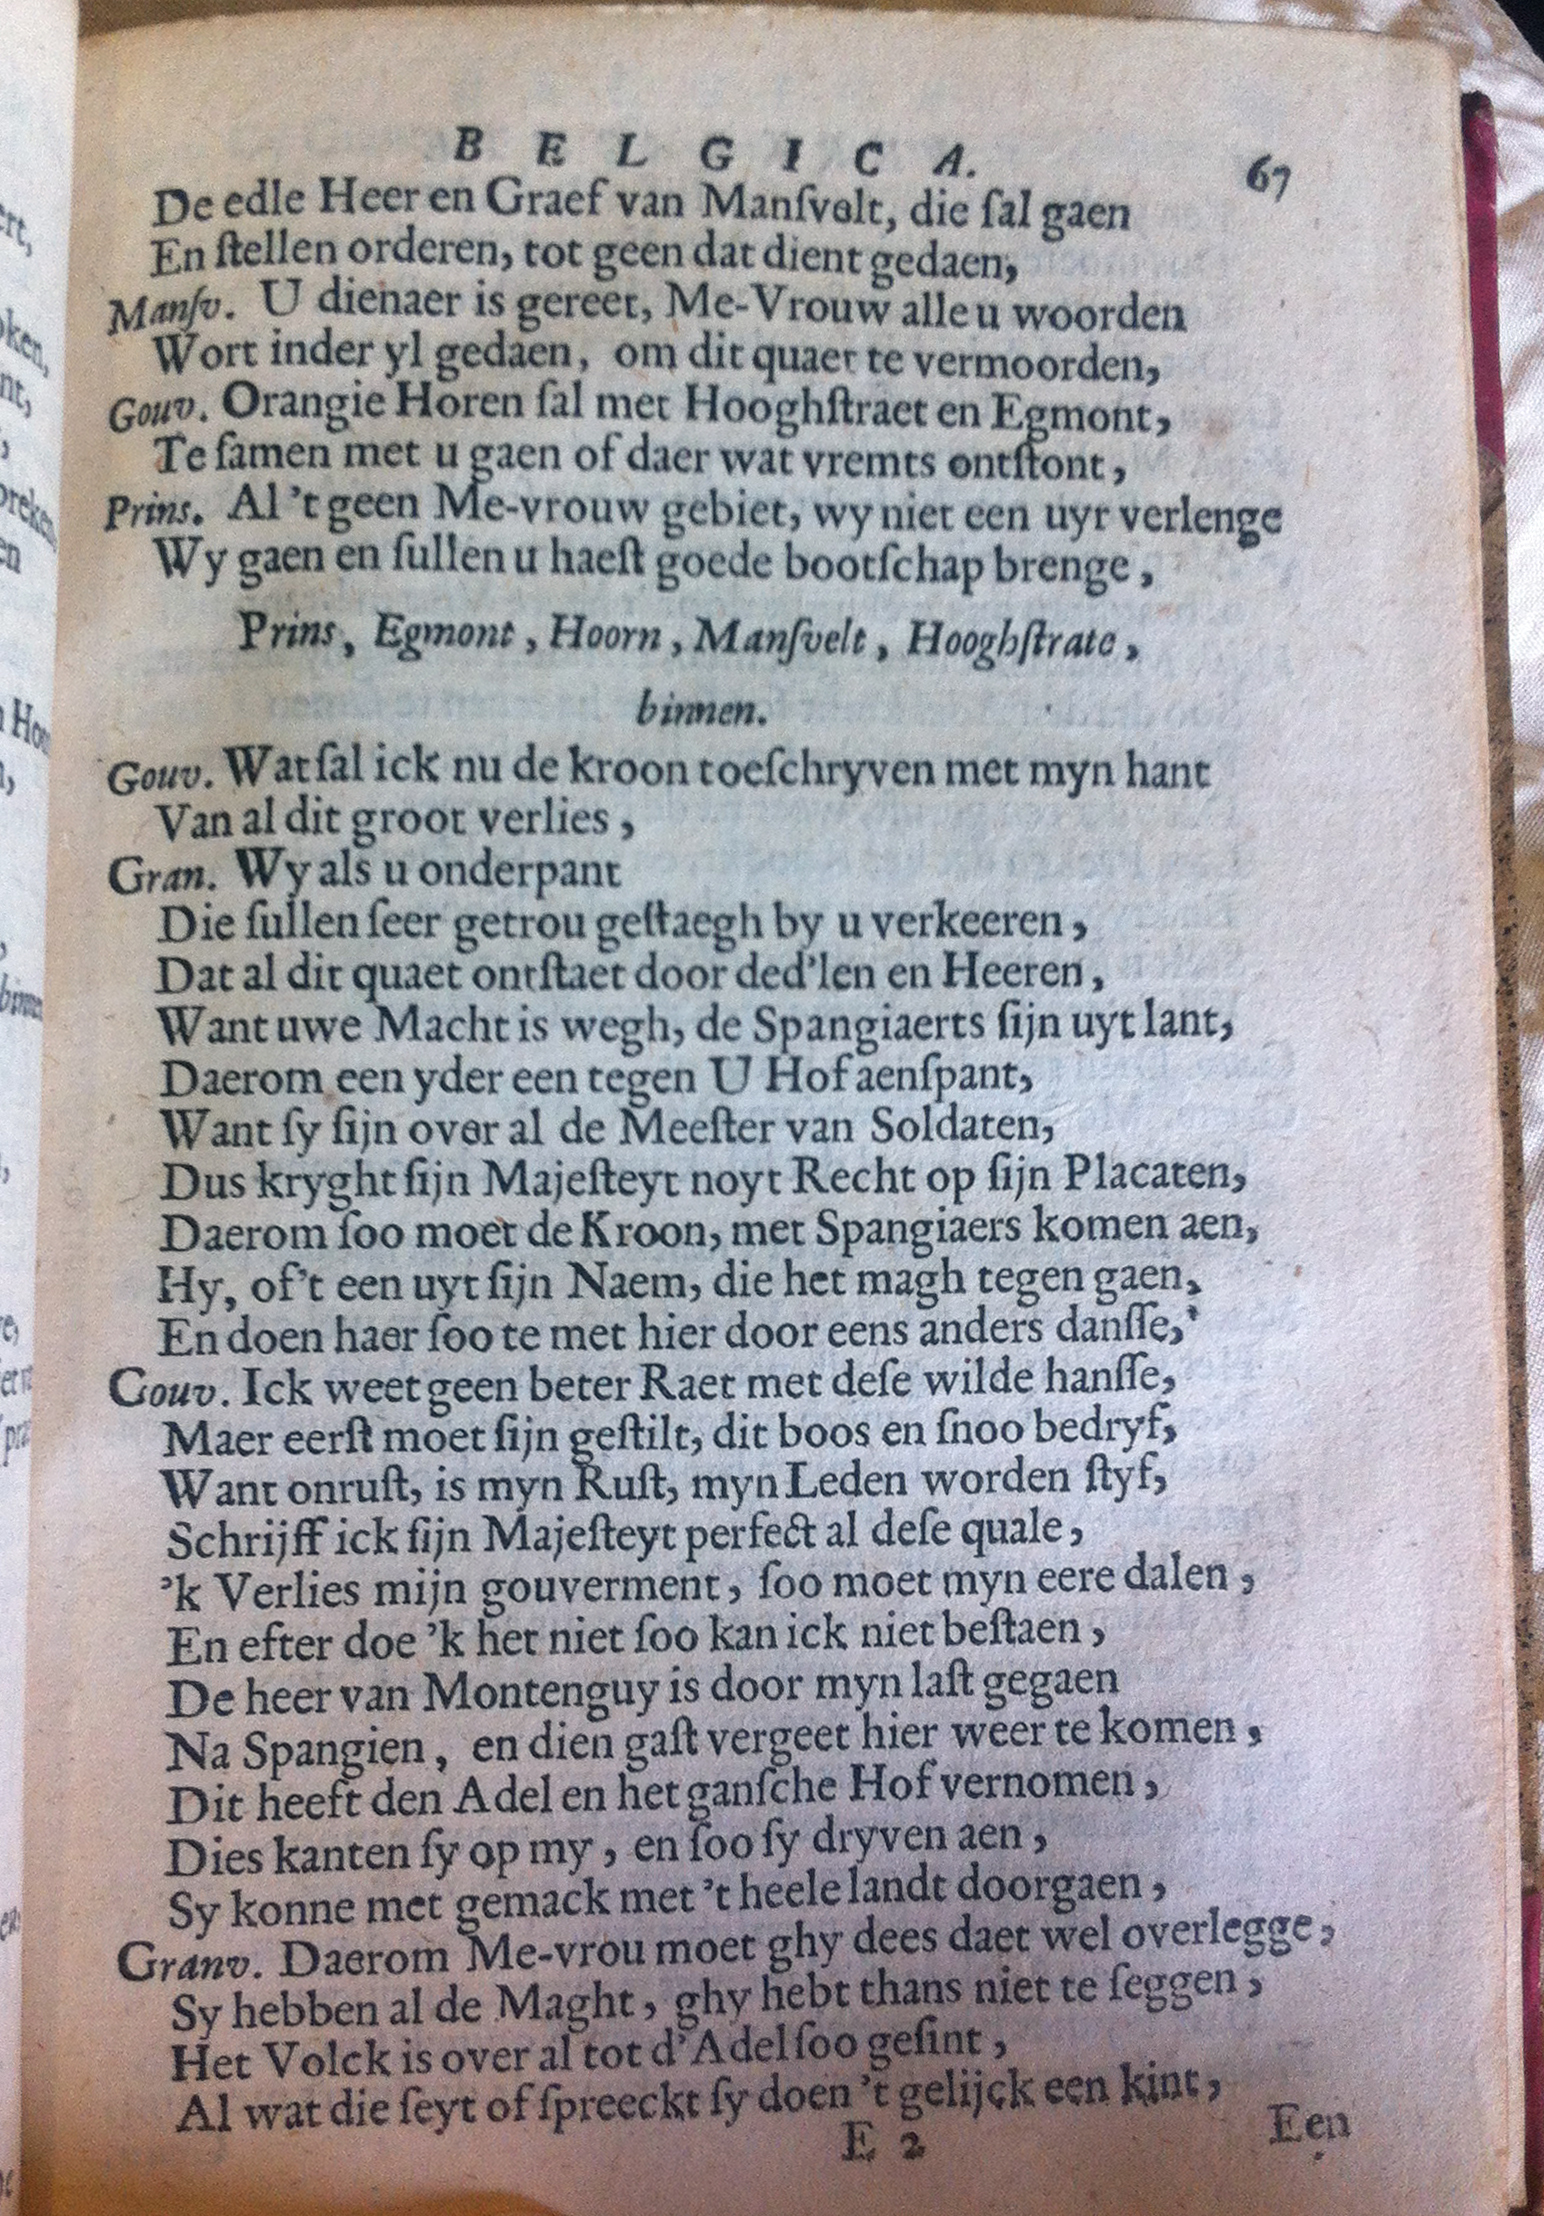 B E L G I C A. 67
De edle Heer en Graef van Manſvelt, die ſal gaen
En ſtellen orderen, tot geen dat dient gedaen,
Manſv. U dienaer is gereet, Me-Vrouw alle u woorden
Wort inder yl gedaen, om dit quaet te vermoorden,
Gouv. Orangie Horen ſal met Hooghſtraet en Egmont,
Te ſamen met u gaen of daer wat vremts ontſtont,
Prins. Al 't geen Me-vrouw gebiet, wy niet een uyr verlenge
Wy gaen en ſullen u haeſt goede bootſchap brenge,
Prins, Egmont, Hoorn, Manſvelt, Hooghſtrate,
binnen.
Gouv. Wat ſal ick nu de kroon toeſchryven met myn hant
Van al dit groot verlies,
Gran. Wy als u onderpant
Die ſullen ſeer getrou geſtaegh by u verkeeren,
Dat al dit quaet ontſtaet door ded'len en Heeren,
Want uwe Macht is wegh, de Spangiaerts ſijn uyt lant,
Daerom een yder een tegen U Hof aenſpant,
Want ſy ſijn over al de Meeſter van Soldaten,
Dus kryght ſijn Majeſteyt noyt Recht op ſijn Placaten,
Daerom ſoo moet de Kroon, met Spangiaers komen aen,
Hy, of't een uyt ſijn Naem, die het magh tegen gaen,
En doen haer ſoo te met hier door eens anders danſſe,
Gouv. Ick weet geen beter Raet met deſe wilde hanſſe,
Maer eerſt moet ſijn geſtilt, dit boos en ſnoo bedryf,
Want onruſt, is myn Ruſt, myn Leden worden ſtyf,
Schrijff ick ſijn Majeſteyt perfect al deſe quale,
'k Verlies mijn gouverment, ſoo moet myn eere dalen,
En efter doe 'k het niet ſoo kan ick niet beſtaen,
De heer van Montenguy is door myn laſt gegaen
Na Spangien, en dien gaſt vergeet hier weer te komen,
Dit heeft den Adel en het ganſche Hof vernomen,
Dies kanten ſy op my, en ſoo ſy dryven aen,
Sy konne met gemack met 't heele landt doorgaen,
Granv. Daerom Me-vrou moet ghy dees daet wel overlegge,
Sy hebben al de Maght, ghy hebt thans niet te ſeggen,
Het Volck is over al tot d'Adel ſoo geſint,
Al wat die ſeyt of ſpreeckt ſy doen 't gelijck een kint,
E 2 Een